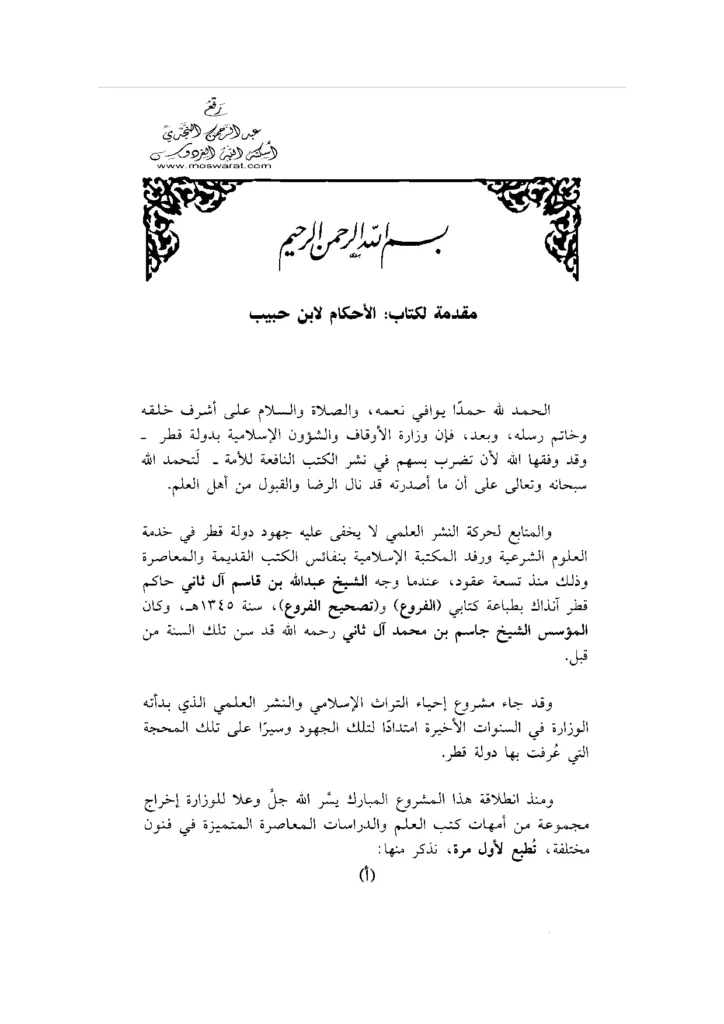 رفع
عبد الرحمن النجدي
أسكنه الله الفردوس
www.moswarat.com
بسم الله الرحمن الرحيم
مقدمة لكتاب: الأحكام لابن حبيب
الحمد لله حمدًا يوافي نعمه، والصلاة والسلام على أشرف خلقه
وخاتم رسله، وبعد، فإن وزارة الأوقاف والشؤون الإسلامية بدولة قطر ـ
وقد وفقها الله لأن تضرب بسهم في نشر الكتب النافعة للأمة ـ لَتحمد الله
سبحانه وتعالى على أن ما أصدرته قد نال الرضا والقبول من أهل العلم.
والمتابع لحركة النشر العلمي لا يخفى عليه جهود دولة قطر في خدمة
العلوم الشرعية ورفد المكتبة الإسلامية بنفائس الكتب القديمة والمعاصرة
وذلك منذ تسعة عقود، عندما وجه الشيخ عبدالله بن قاسم آل ثاني حاكم
قطر آنذاك بطباعة كتابي (الفروع) و(تصحيح الفروع)، سنة ١٣٤٥هـ، وكان
المؤسس الشيخ جاسم بن محمد آل ثاني رحمه الله قد سن تلك السنة من
قبل.
وقد جاء مشروع إحياء التراث الإسلامي والنشر العلمي الذي بدأته
الوزارة في السنوات الأخيرة امتدادًا لتلك الجهود وسيرًا على تلك المحجة
التي عُرفت بها دولة قطر.
ومنذ انطلاقة هذا المشروع المبارك يسَّر الله جلَّ وعلا للوزارة إخراج
مجموعة من أمهات كتب العلم والدراسات المعاصرة المتميزة في فنون
مختلفة، تُطبع لأول مرة، نذكر منها:
(أ)